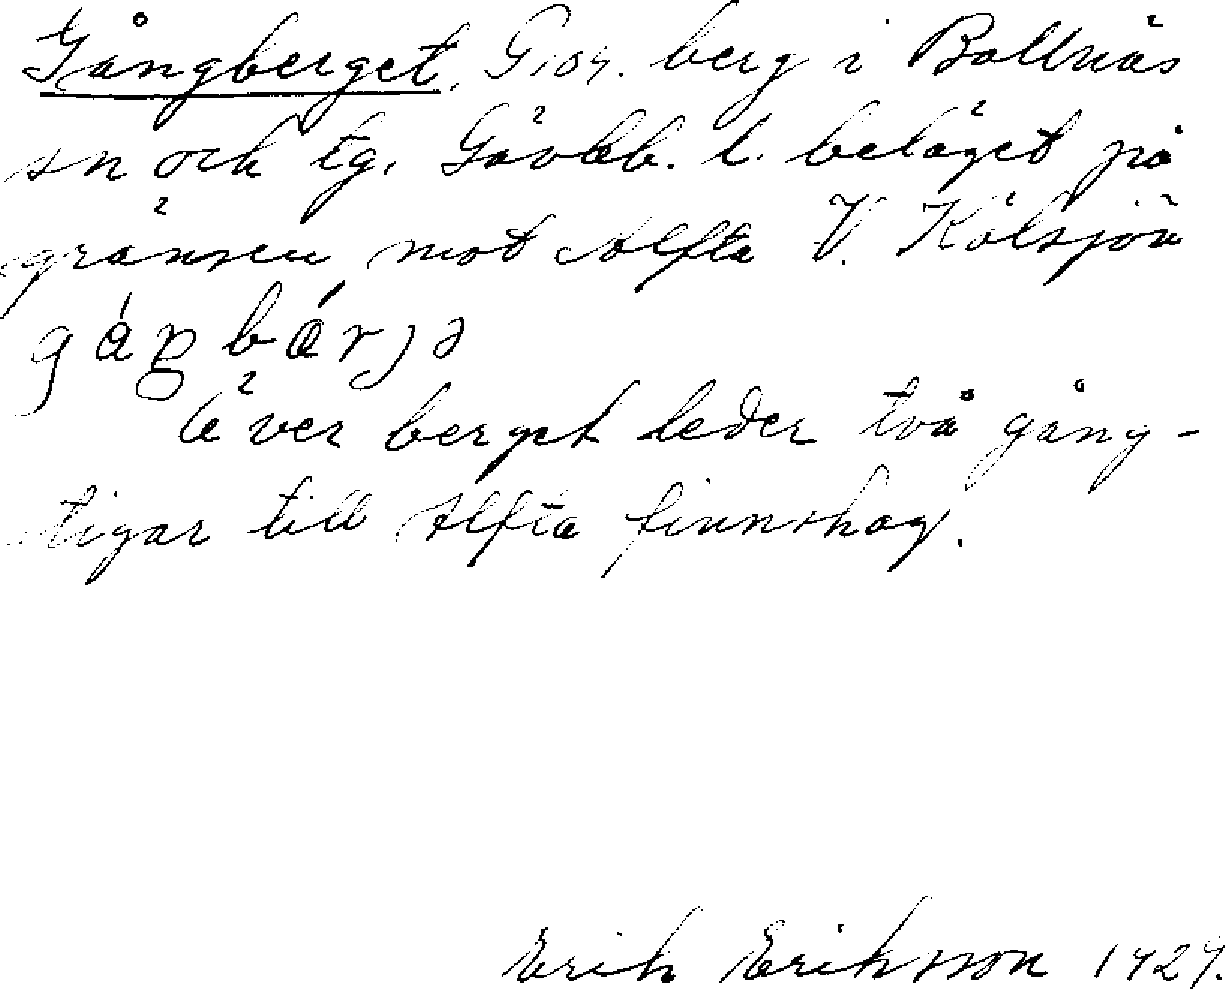 Gångberget. berg i Bollnäs
sn och tg. Gävleb. l. beläget på
gränsen mot Alfta V. Kölsjön
gáŋbǽrjə
Över berget leder två gång-
stigar till Alfta finnskog.
Erik Eriksson 1929.